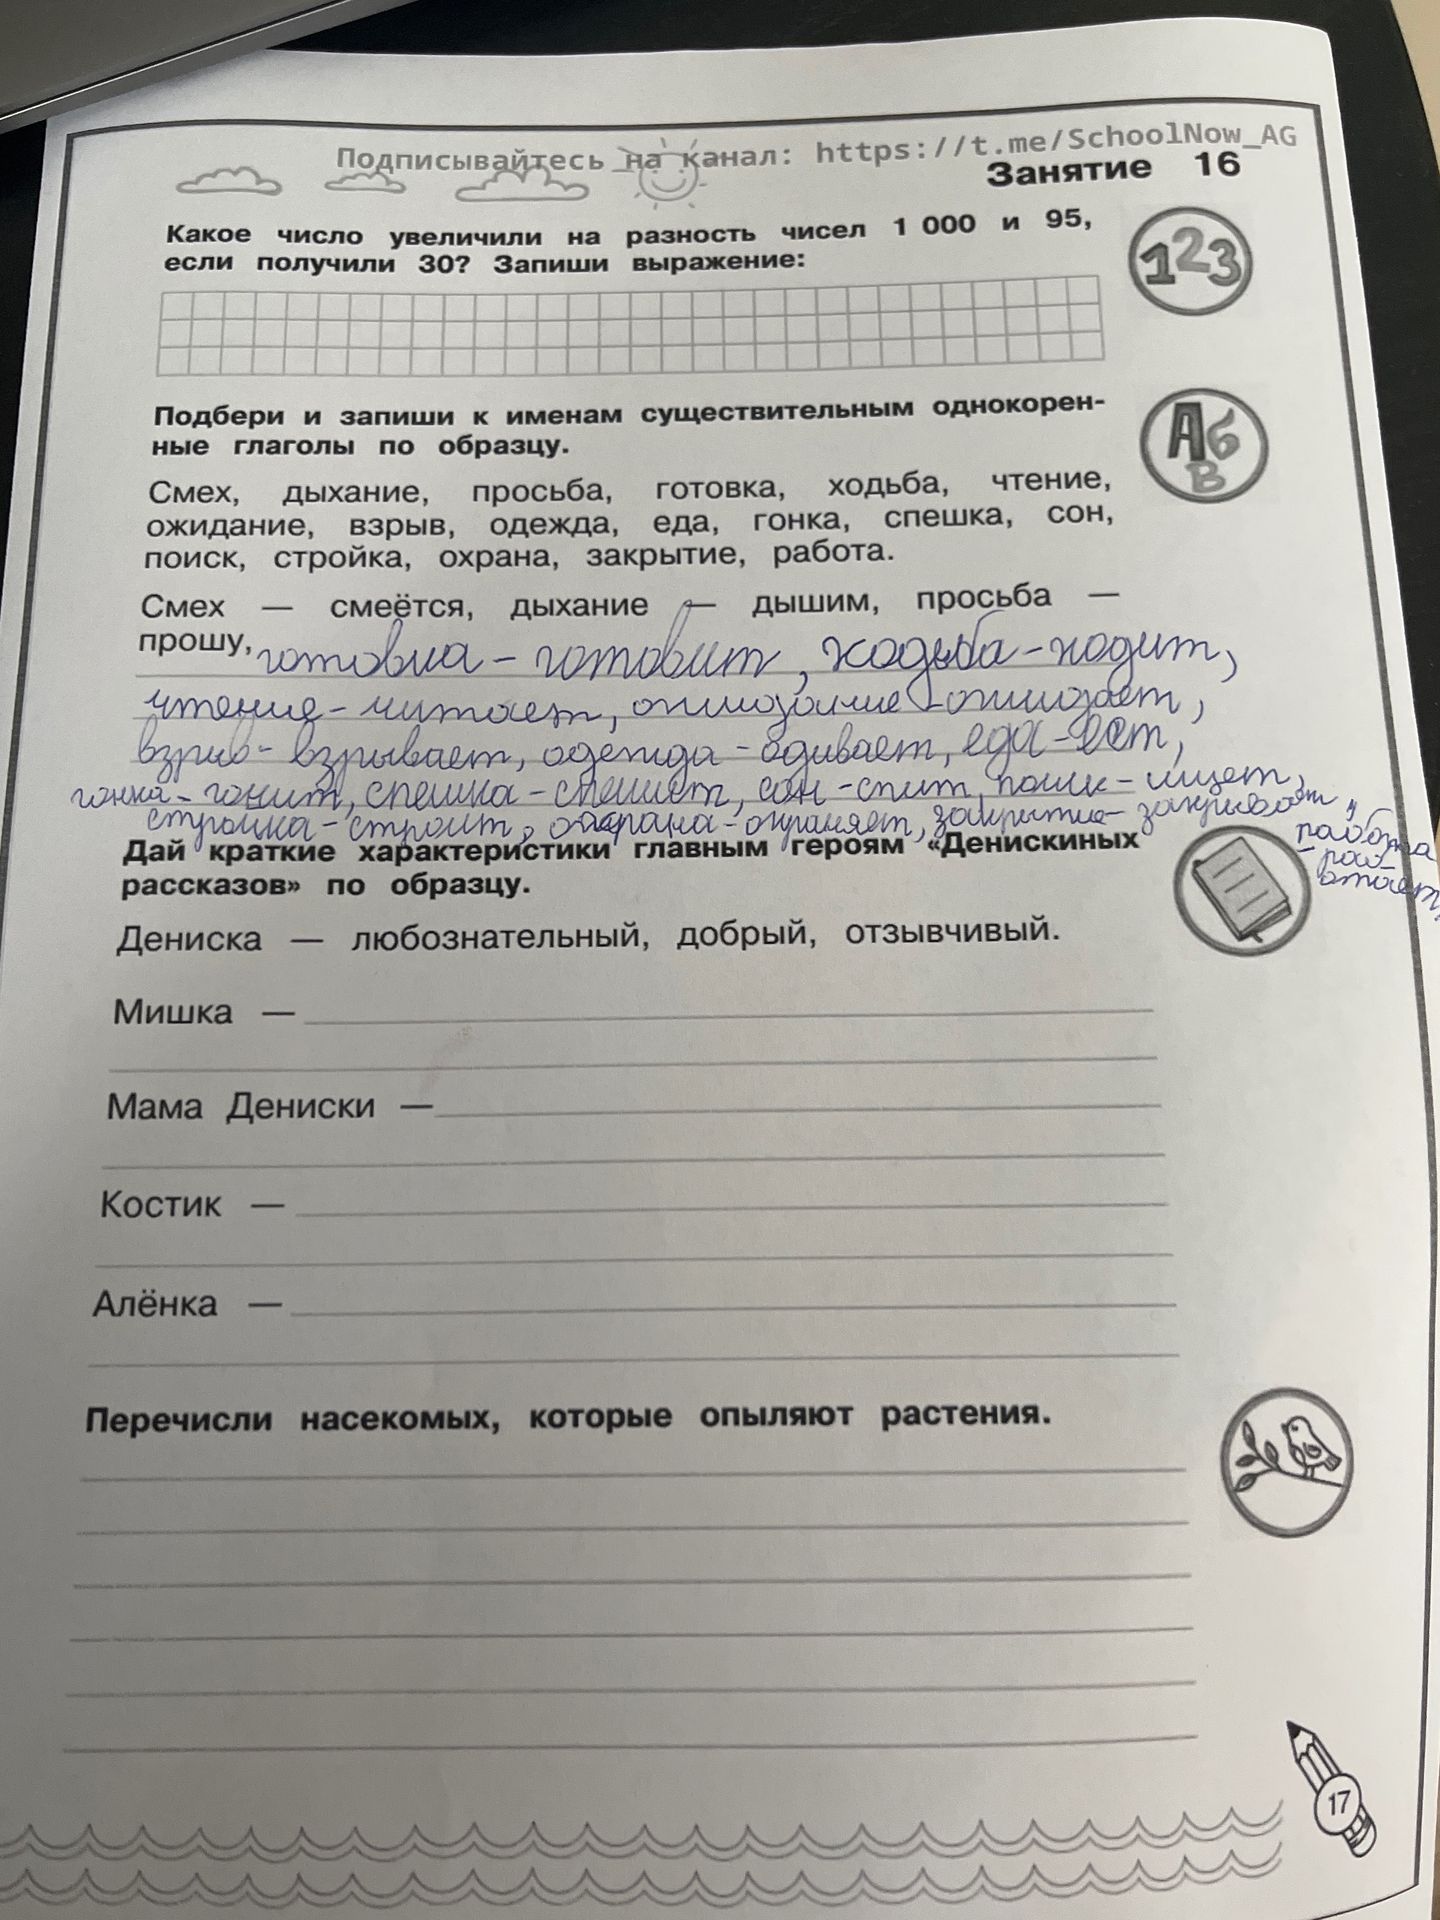 Подписывайтесь на канал: https://t.me/SchoolNow_AG
Занятие 16
Какое число увеличили на разность чисел 1 000 и 95,
если получили 30? Запиши выражение:
123
Подбери и запиши к именам существительным однокорен-
ные глаголы по образцу.
АБВ
Смех, дыхание, просьба, готовка, ходьба, чтение,
ожидание, взрыв, одежда, еда, гонка, спешка, сон,
поиск, стройка, охрана, закрытие, работа.
Смех — смеётся, дыхание — дышим, просьба —
прошу, готовка - готовит, ходьба - ходит,
чтение - читает, ожидание - ожидает,
взрыв - взрывает, одежда - одивает, еда - ест,
гонка - гонит, спешка - спешит, сон - спит, поиск - ищет,
стройка - строит, охрана - охраняет, закрытие - закрывает,
работа
- раб-
отает,
Дай краткие характеристики главным героям «Денискиных
рассказов» по образцу.
Дениска — любознательный, добрый, отзывчивый.
Мишка —
Мама Дениски —
Костик —
Алёнка —
Перечисли насекомых, которые опыляют растения.
17